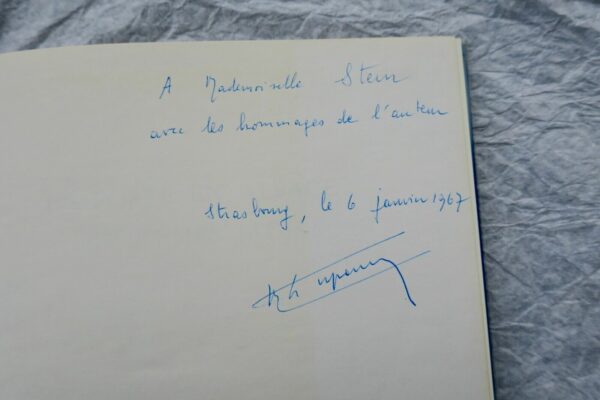 A Mademoiselle Stern
avec les hommages de l'auteur
Strasbourg, le 6 janvier 1967